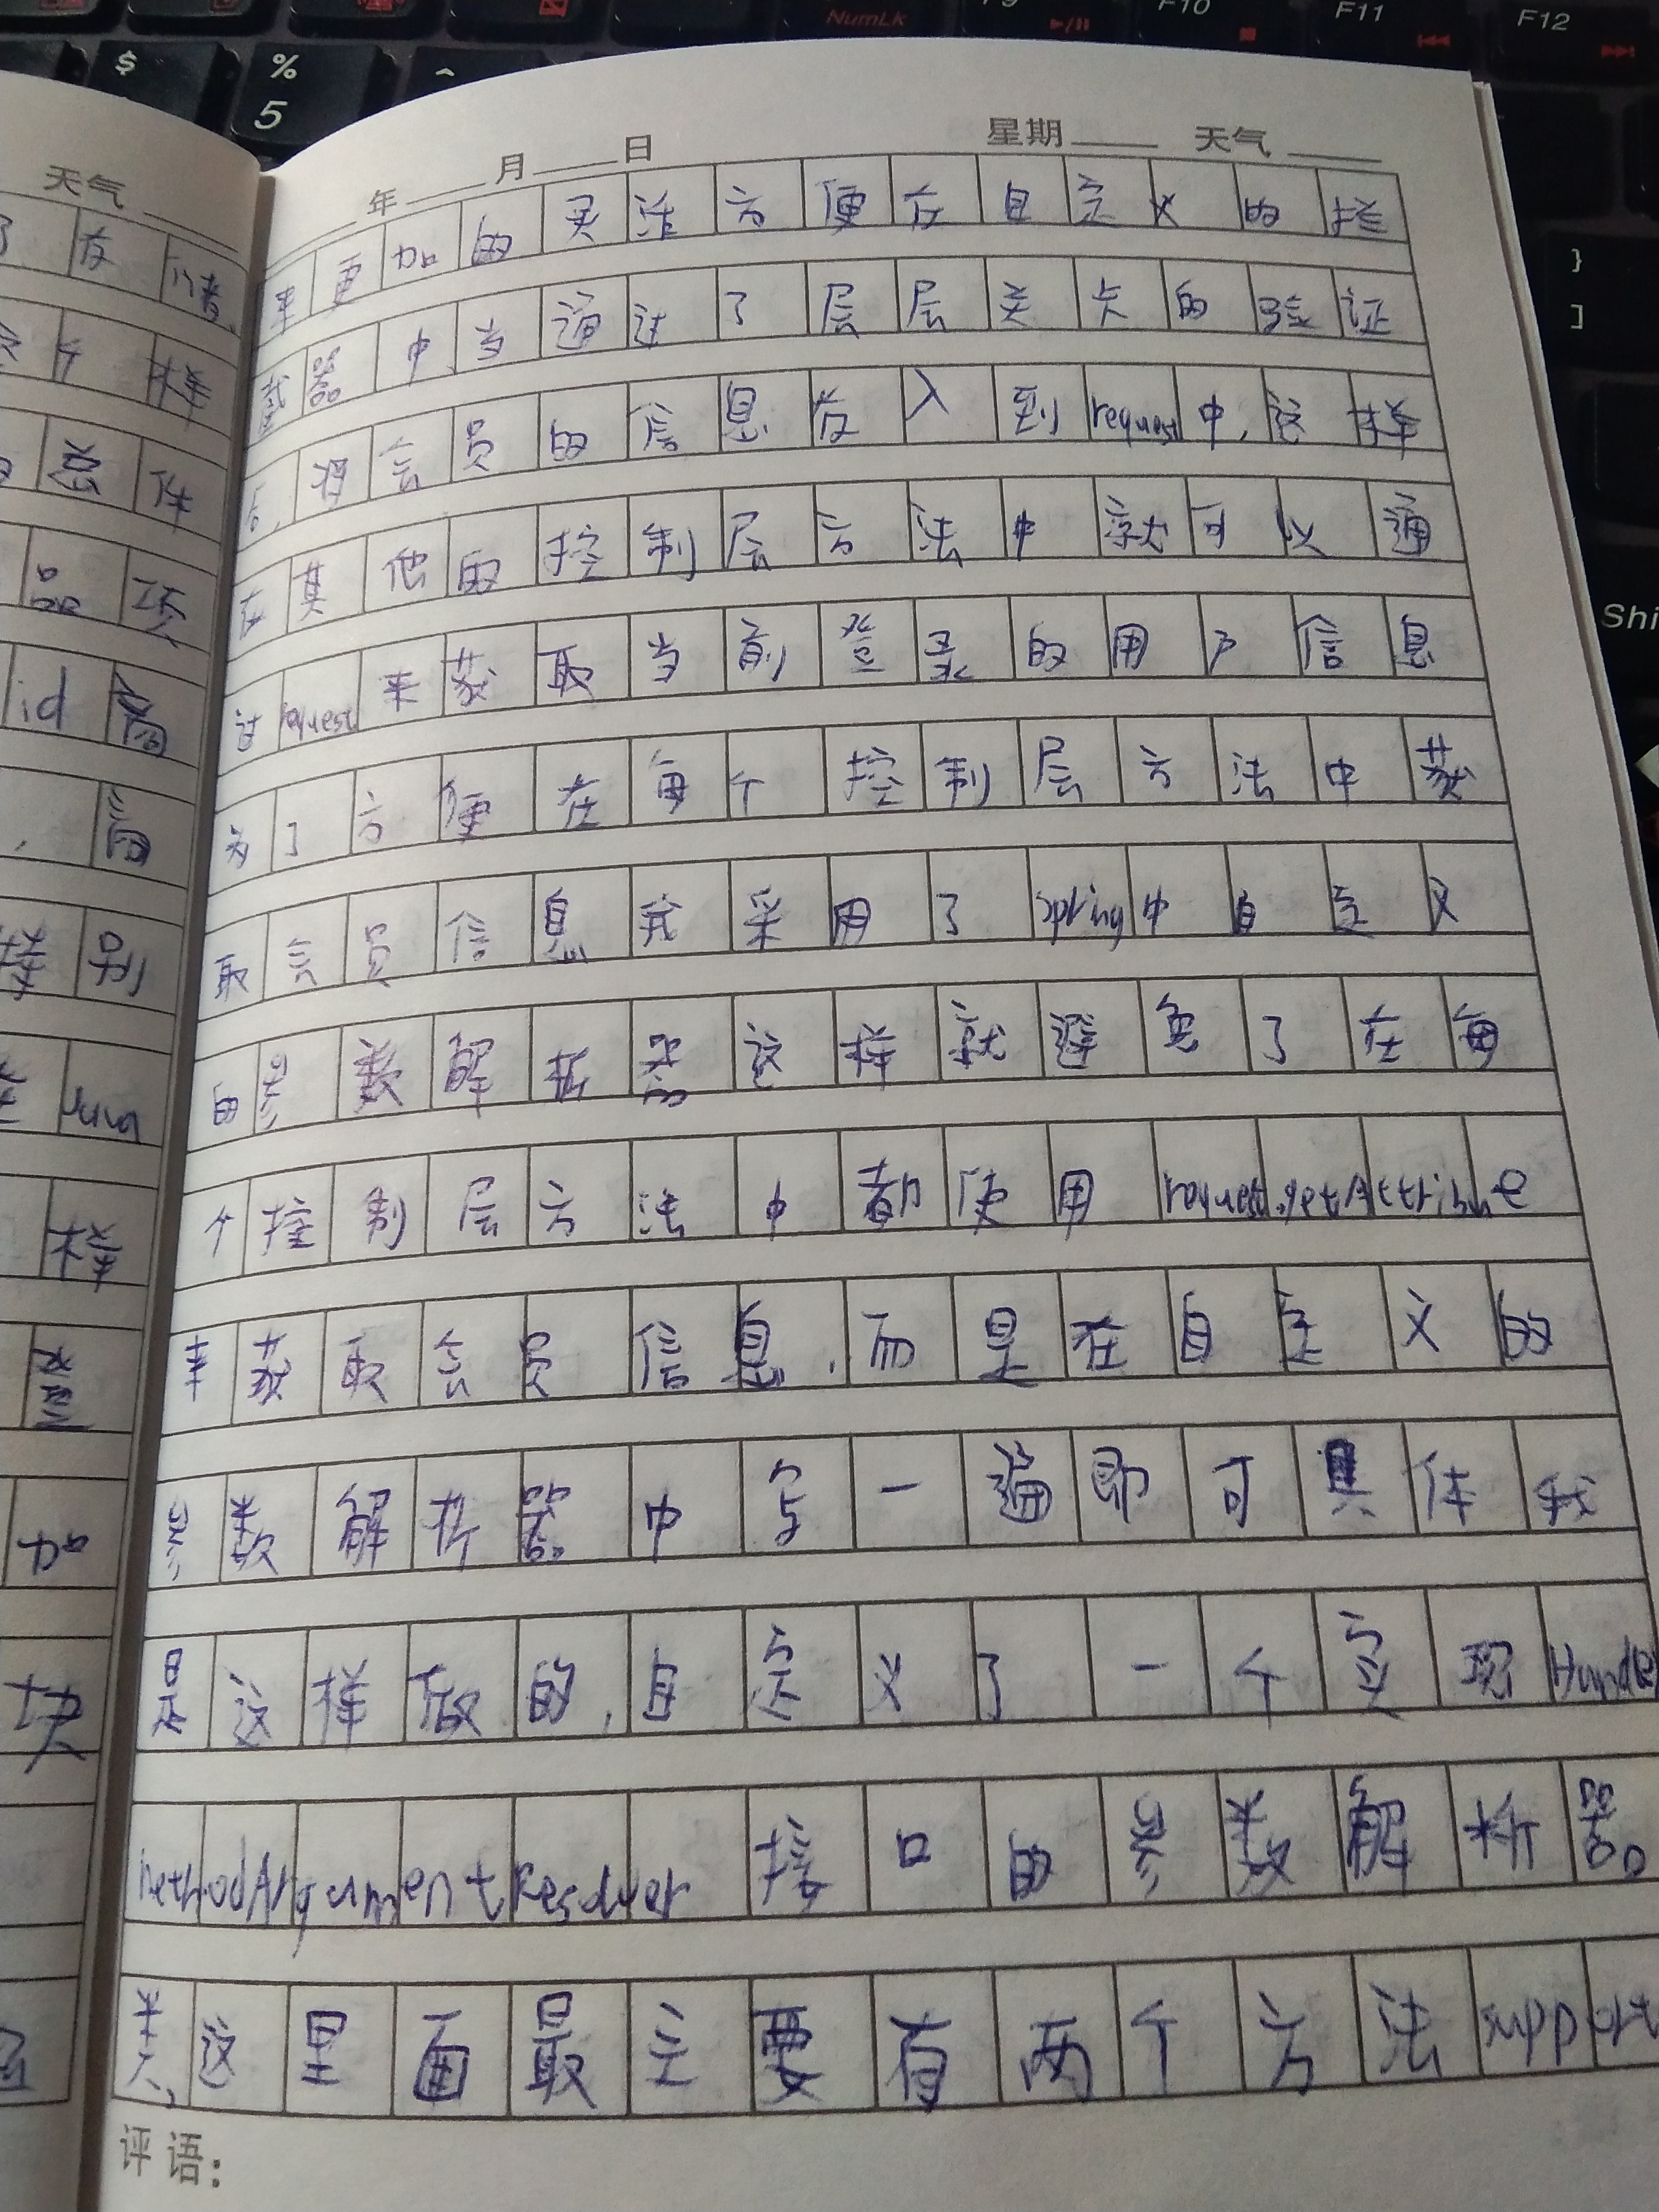 NumLk
F9
F10
F11
F12
$
%
5
^
}
]
Shi
天气
年 月 日 星期 天气
来更加的灵活方便在自定义的拦
截器中,当通过了层层关卡的验证
后,将会员的信息放入到request中,这样
在其他的控制层方法中就可以通
过request来获取当前登录的用户信息
为了方便在每个控制层方法中获
取会员信息我采用了spring中自定义
的参数解析器这样就避免了在每
个控制层方法中都使用request.getAttribute
来获取会员信息,而是在自定义的
参数解析器中写一遍即可具体我
是这样做的,自定义了一个实现Handler
MethodArgumentResolver接口的参数解析器
类,这里面最主要有两个方法support
评语:
存
个样
件
品项
id
样别
java
样
登
加
块